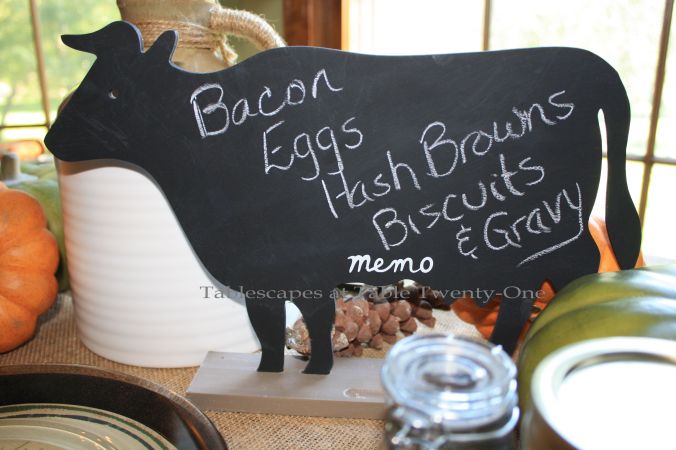 Bacon
Eggs
Hash Browns
Biscuits
& Gravy
memo
Tablescapes at Table Twenty-One